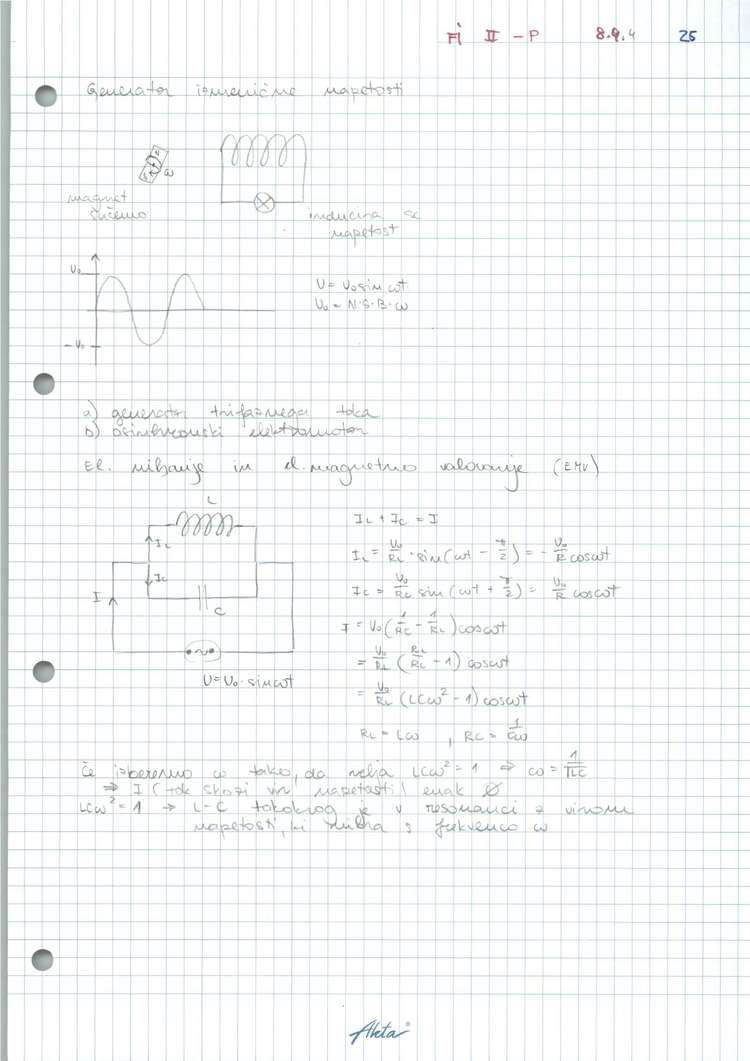 Fi II - P 8.4.4 25
Generator izmenične napetosti
ω
magnet
sučemo
inducira se
napetost
U₀
- U₀
U = U₀ sin ωt
U₀ = N·S·B·ω
a) generator trifaznega toka
b) asinhronski elektromotor
El. nihanje in el. magnetno valovanje (EMV)
L
I_L
I_C
I
C
U = U₀ · sin ωt
I_L + I_C = I
I_L = U₀/R_L · sin(ωt - π/2) = - U₀/R cos ωt
I_C = U₀/R_C sin (ωt + π/2) = U₀/R cos ωt
I = U₀ (1/R_C - 1/R_L) cos ωt
= U₀/R_L (R_L/R_C - 1) cos ωt
= U₀/R_L (LCω² - 1) cos ωt
R_L = Lω , R_C = 1/Cω
Če izberemo ω tako, da velja LCω² = 1 ⇒ ω = 1/√LC
⇒ I (tok skozi vir napetosti) enak Ø
LCω² = 1 → L-C tokokrog je v resonanci z virom
napetosti, ki niha s frekvenco ω
Aleta